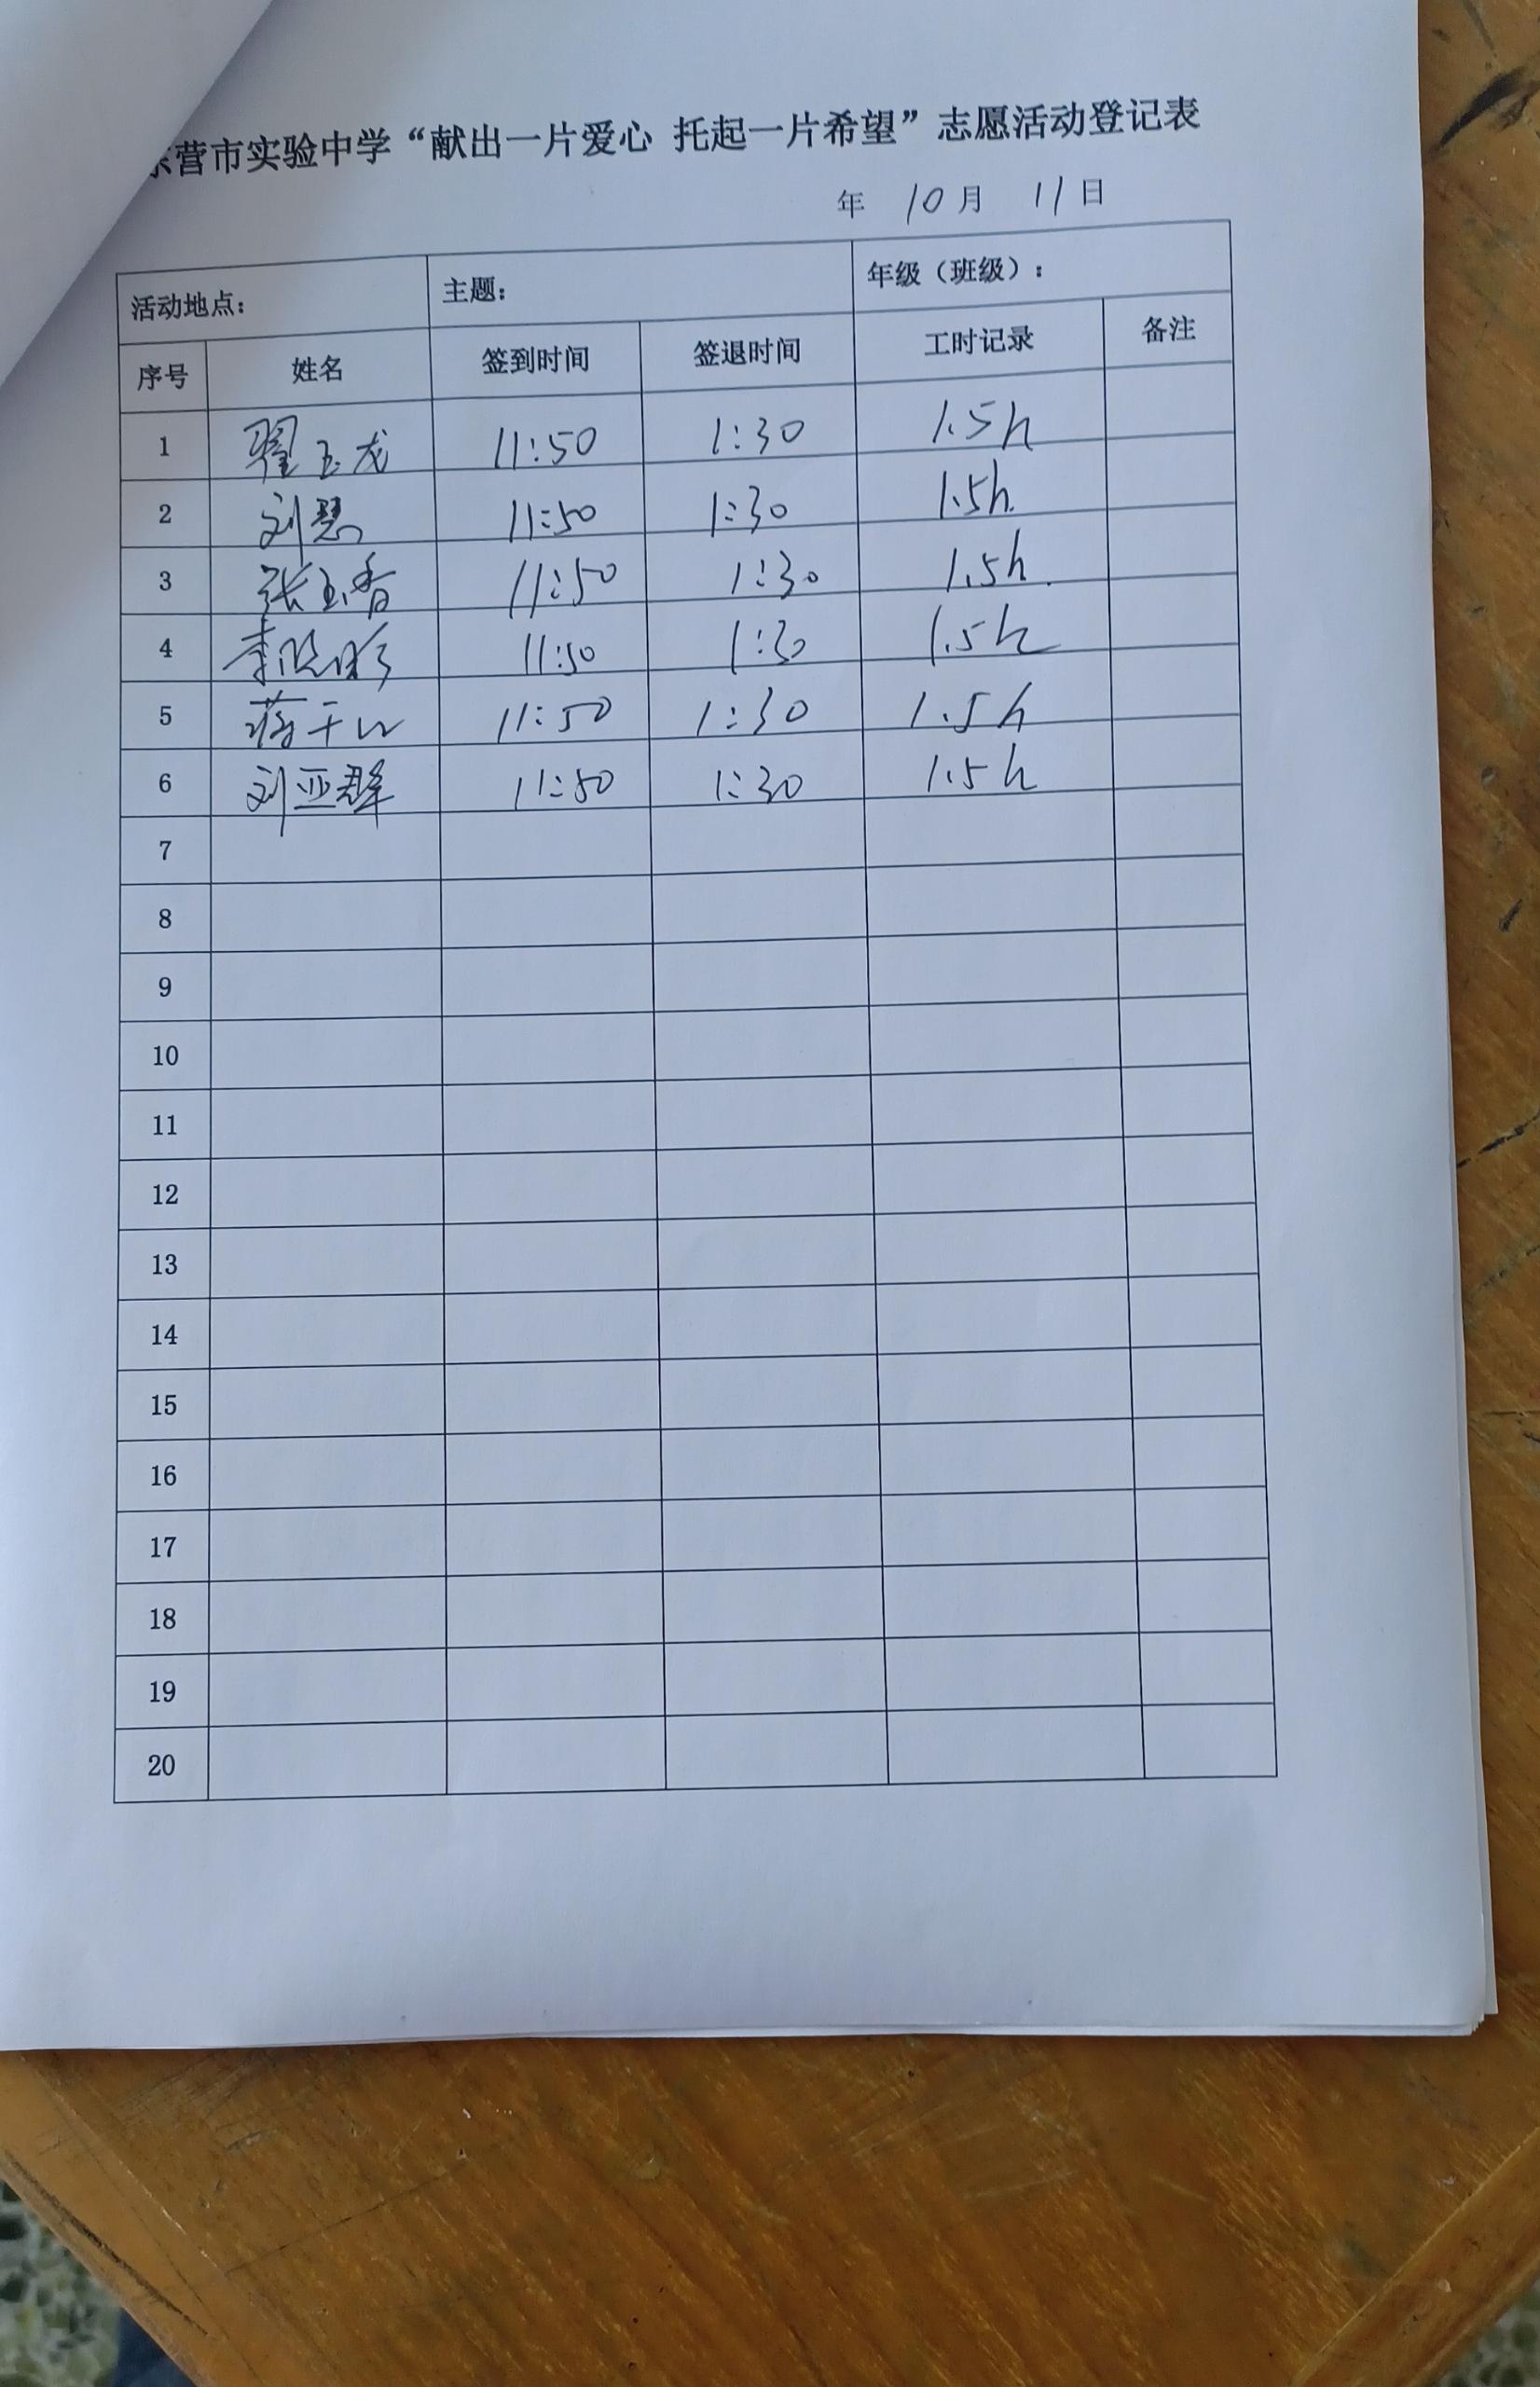 营市实验中学“献出一片爱心 托起一片希望”志愿活动登记表
年 10月 11日
活动地点： 主题： 年级（班级）：
序号 姓名 签到时间 签退时间 工时记录 备注
1 翟玉龙 11:50 1:30 1.5h
2 刘慧 11:50 1:30 1.5h.
3 张玉香 11:50 1:30 1.5h.
4 李晓 11:50 1:30 1.5h
5 蒋千 11:50 1:30 1.5h
6 刘亚群 11:50 1:30 1.5h
7
8
9
10
11
12
13
14
15
16
17
18
19
20